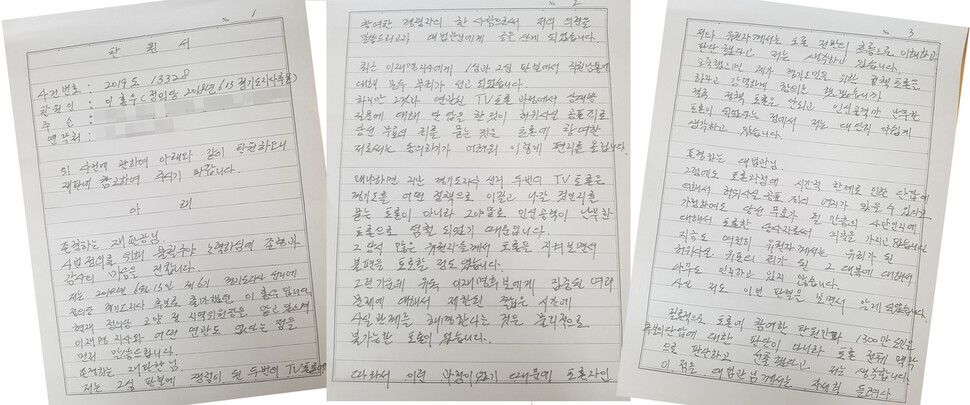 No 1
탄 원 서
사건번호 : 2019도 13328
탄원인 : 이홍우(정의당 2018년 613 경기도지사후보)
주 소 :
연락처 :
위 사건에 관하여 아래와 같이 탄원하오니
재판에 참고하여 주시기 바랍니다.
아 래
존경하는 재판관님.
사법정의를 위해 불철주야 노력하심에 존경과
감사의 마음을 전합니다.
저는 2018년 6월 13일 제7회 경기도지사 선거에
정의당 경기도지사 후보로 출마했던 이홍우입니다.
현재 정의당 고양 정 지역위원장을 맡고 있으며
이재명 지사와 어떤 연관도 없다는 점을
먼저 말씀드립니다.
존경하는 재판관님.
저는 2심 판결에 쟁점이 된 두번의 TV토론에
No 2
참여한 경쟁자의 한 사람으로써 저의 의견을
말씀드리고자 대법관님에게 글을 쓰게 되었습니다.
최근 이재명지사에게 1심과 2심 판결에서 직권남용에
대해 모두 무죄가 선고 되었습니다.
하지만 2심과 연관된 TV토론 과정에서 상대방
질문에 대해 한 답을 한 것이 허위사실 공표죄로
당선 무효의 죄를 묻는 것은 토론에 참여한
저로서는 동의하기 어려워 이렇게 편지를 올립니다.
왜냐하면 지난 경기도지사 선거 두번의 TV토론은
경기도를 어떤 정책으로 이끌고 나갈 것인지를
묻는 토론이 아니라 그야말로 인신공격이 난무한
토론으로 점철 되었기 때문입니다.
그 당시 많은 유권자들께서 토론을 지켜보면서
불편을 토로할 정도 였습니다.
그런 가운데 유독 이재명후보에게 집중된 여러
문제에 대해서 제한된 짧은 시간에
사실관계를 해명한다는 것은 물리적으로
불가능한 토론이 였습니다.
따라서 이런 과정이였기 때문에 토론자인
No 3
저나 유권자께서는 토론 전반의 흐름으로 이해하고
판단 했다고 저는 생각하고 있습니다.
오죽했으면 제가 경기도민을 위한 정책 토론을
하자고 강력하게 항의를 했겠습니까?
정책 토론은 안되고 인신공격만 난무한
토론이 되었다는 점에서 저는 대단히 아쉽게
생각하고 있습니다.
존경하는 대법관님.
그럼에도 토론과정에 시간적 한계로 인한 단답에
의해서 허위사실 공표 죄의 여지가 있을 수 있다고
가정하여도 당선 무효가 될 만큼의 사안인지에
대해서 토론한 당사자로서 의문을 가지고 있습니다.
지금도 여전히 유권자께서는 유죄가 된
허위사실 유포의 죄가 된 그 대목에 대해서
아무도 인식하고 있지 않습니다.
사실 저도 이번 판결을 보면서 알게 되었습니다.
결론적으로 토론에 참여한 탄원인과 1300만 도민은
부분의 단답에 대한 판단이 아니라 토론 전체 맥락
으로 판단하고 선출했다고 저는 생각합니다.
이 점을 대법관님께서는 자세히 들여다